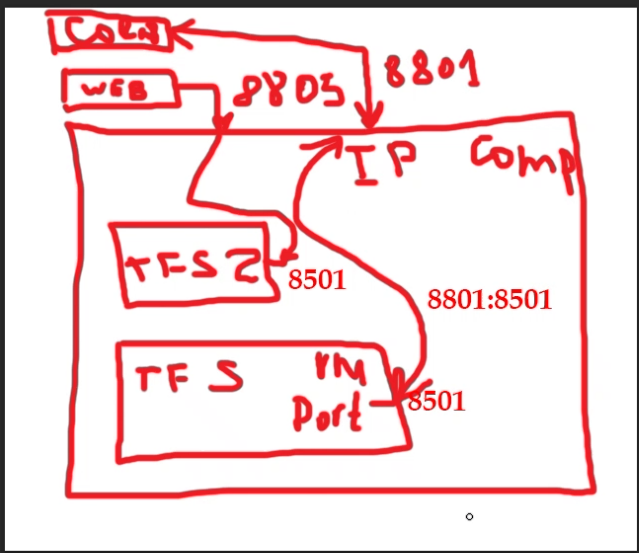 8801
WEB
8805
IP Comp
TFS 2
8501
8801:8501
TFS VM
Port
8501